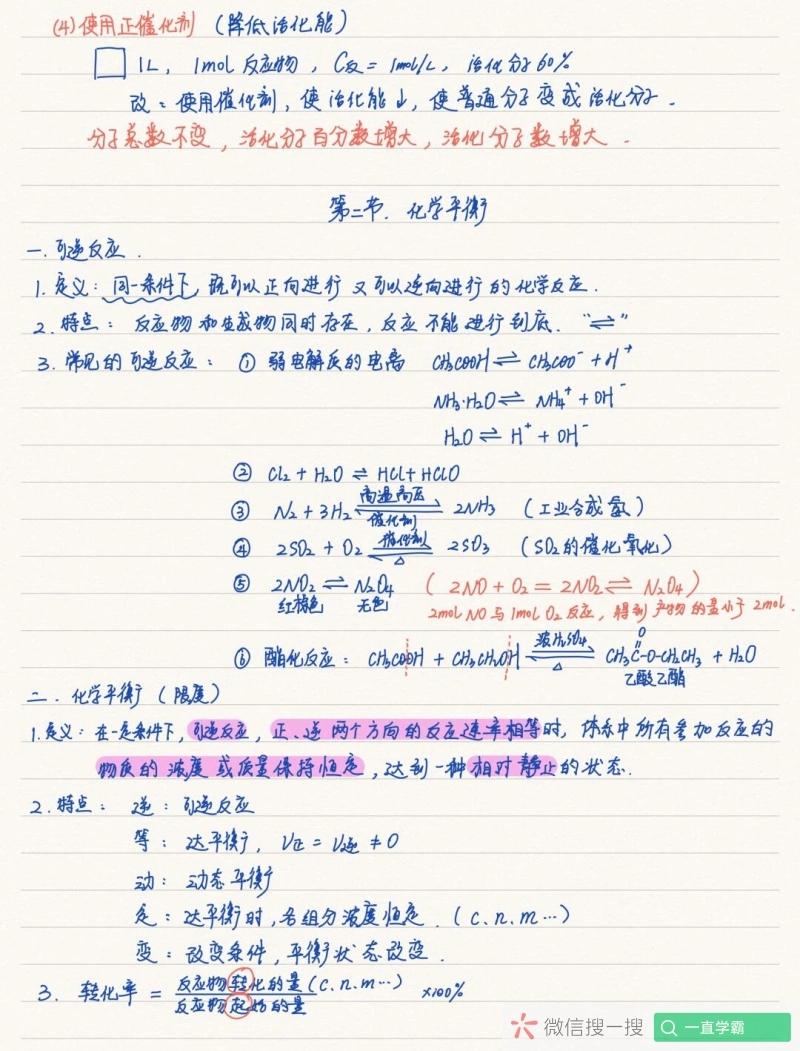 (4)使用正催化剂 (降低活化能)
1L, 1mol 反应物, C反 = 1mol/L, 活化分子60%
改: 使用催化剂, 使活化能↓, 使普通分子变成活化分子.
分子总数不变, 活化分子百分数增大, 活化分子数增大.
第二节. 化学平衡
一. 可逆反应.
1. 定义: 同一条件下, 既可以正向进行又可以逆向进行的化学反应.
2. 特点: 反应物和生成物同时存在, 反应不能进行到底. "⇌"
3. 常见的可逆反应: ① 弱电解质的电离 CH3COOH ⇌ CH3COO⁻ + H⁺
NH3·H2O ⇌ NH4⁺ + OH⁻
H2O ⇌ H⁺ + OH⁻
② Cl2 + H2O ⇌ HCl + HClO
③ N2 + 3H2 ⇌ 2NH3 (工业合成氨)
高温高压
催化剂
④ 2SO2 + O2 ⇌ 2SO3 (SO2的催化氧化)
催化剂
△
⑤ 2NO2 ⇌ N2O4 (2NO + O2 = 2NO2 ⇌ N2O4)
红棕色 无色 2mol NO与1mol O2反应, 得到产物的量小于2mol.
⑥ 酯化反应: CH3COOH + CH3CH2OH ⇌ CH3C-O-CH2CH3 + H2O
浓H2SO4 O
△ 乙酸乙酯
二. 化学平衡 (限度)
1. 定义: 在一定条件下, 可逆反应, 正、逆两个方向的反应速率相等时, 体系中所有参加反应的
物质的浓度或质量保持恒定, 达到一种相对静止的状态.
2. 特点: 逆: 可逆反应
等: 达平衡, V正 = V逆 ≠ 0
动: 动态平衡
定: 达平衡时, 各组分浓度恒定. (c.n.m…)
变: 改变条件, 平衡状态改变.
3. 转化率 = 反应物转化的量(c.n.m…) ×100%
反应物起始的量
微信搜一搜 一直学霸